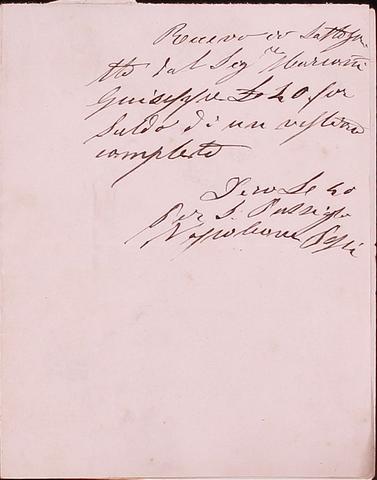 Ricevo io Sottoscri-
tto dal Seg.r Mariotti
Guiseppe Le 40 per
Saldo di un vestiario
completo
Dico Le 40
Per S. 
Napoleone